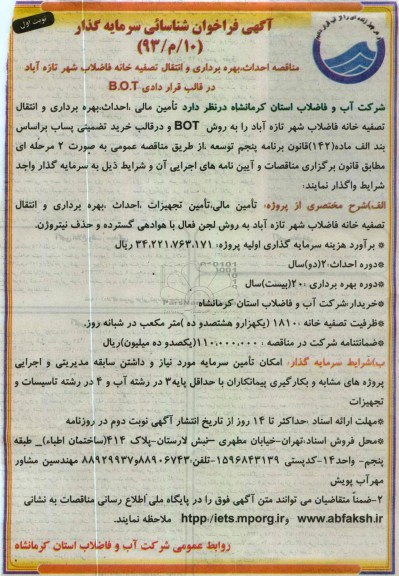 نوبت اول
آگهی فراخوان شناسائی سرمایه گذار
(۹۳/م/۱۰)
مناقصه احداث،بهره برداری و انتقال تصفیه خانه فاضلاب شهر تازه آباد
در قالب قرار دادی B.O.T
شرکت آب و فاضلاب استان کرمانشاه درنظر دارد تأمین مالی ،احداث،بهره برداری و انتقال
تصفیه خانه فاضلاب شهر تازه آباد را به روش BOT و درقالب خرید تضمینی پساب براساس
بند الف ماده(۱۴۲)قانون برنامه پنجم توسعه ،از طریق مناقصه عمومی به صورت ۲ مرحله ای
مطابق قانون برگزاری مناقصات و آیین نامه های اجرایی آن و شرایط ذیل به سرمایه گذار واجد
شرایط واگذار نمایند:
الف)شرح مختصری از پروژه: تأمین مالی،تأمین تجهیزات ،احداث ،بهره برداری و انتقال
تصفیه خانه فاضلاب شهر تازه آباد به روش لجن فعال با هوادهی گسترده و حذف نیتروژن.
* برآورد هزینه سرمایه گذاری اولیه پروژه: ۳۴،۲۲۱،۷۶۳،۱۷۱ ریال
*دوره احداث:۲(دو)سال
*دوره بهره برداری :۲۰(بیست)سال
*خریدار:شرکت آب و فاضلاب استان کرمانشاه
*ظرفیت تصفیه خانه :۱۸۱۰ (یکهزارو هشتصدو ده )متر مکعب در شبانه روز.
*ضمانتنامه شرکت در مناقصه :۱۱۰،۰۰۰،۰۰۰(یکصدو ده میلیون)ریال
ب)شرایط سرمایه گذار: امکان تأمین سرمایه مورد نیاز و داشتن سابقه مدیریتی و اجرایی
پروژه های مشابه و بکارگیری پیمانکاران با حداقل پایه۳ در رشته آب و ۴ در رشته تاسیسات و
تجهیزات
*مهلت ارائه اسناد :حداکثر تا ۱۴ روز از تاریخ انتشار آگهی نوبت دوم در روزنامه
*محل فروش اسناد:تهران-خیابان مطهری –نبش لارستان-پلاک ۴۱۴(ساختمان اطباء)_ طبقه
پنجم- واحد۱۴-کدپستی ۱۵۹۶۸۴۳۱۳۹-تلفن:۸۸۹۰۶۷۴۳و۸۸۹۲۹۹۳۷ مهندسین مشاور
مهرآب پویش
۲-ضمناً متقاضیان می توانند متن آگهی فوق را در پایگاه ملی اطلاع رسانی مناقصات به نشانی
www.abfaksh.ir و httpp/iets.mporg.ir ملاحظه نمایند.
روابط عمومی شرکت آب و فاضلاب استان کرمانشاه